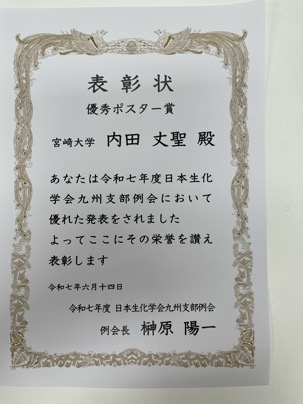 表彰状
優秀ポスター賞
宮崎大学 内田 丈聖 殿
あなたは令和七年度日本生化
学会九州支部例会において
優れた発表をされました
よってここにその栄誉を讃え
表彰します
令和七年六月十四日
令和七年度 日本生化学会九州支部例会
例会長 榊原 陽一